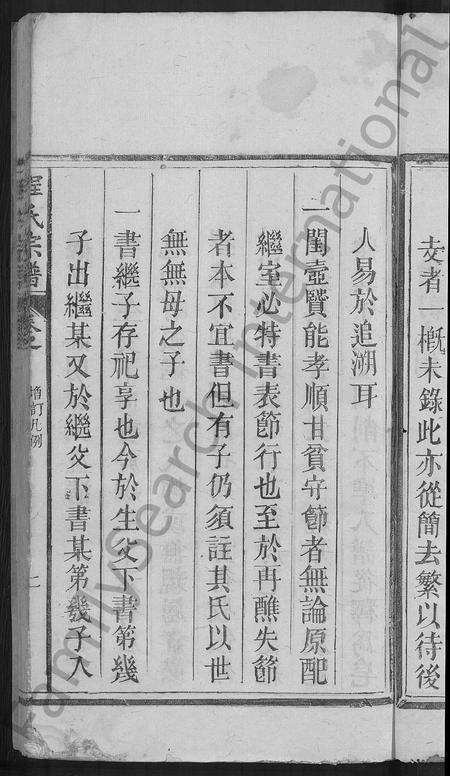 交者一概未錄此亦從簡去繁以待後
人易於追溯耳
一閨壼賢能孝順甘貧守節者無論原配
繼室必特書表節行也至於再醮失節
者本不宜書但有子仍須註其氏以世
無無母之子也
一書繼子存祀享也今於生父下書第幾
子出繼某又於繼父下書某第幾子入
程氏宗譜 卷之
增訂凡例
familysearch International